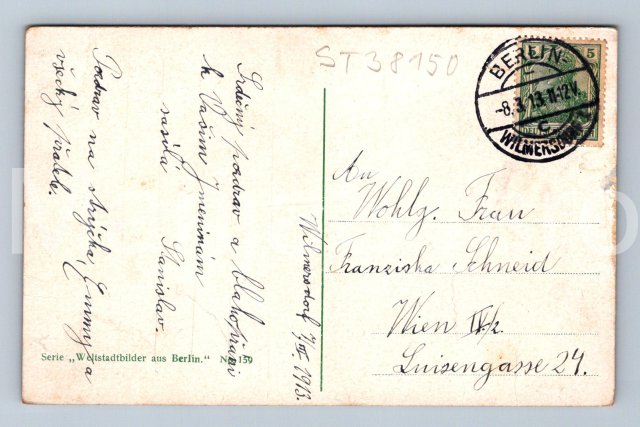 ST38150
BERLIN-
-8.3.13.11-12V.
C
WILMERSDORF 1
5 5
Srdečný pozdrav a blahopřání
k Vašim Jmeninám
zasílá
Stanislav.
Pozdrav na strýčka, Emmy a
všecky přátele.
Wilmersdorf 7/III. 1913.
An
Wohlg. Frau
Franziska Schneid
Wien IV/2.
Luisengasse 24.
Serie „Weltstadtbilder aus Berlin." No. 159